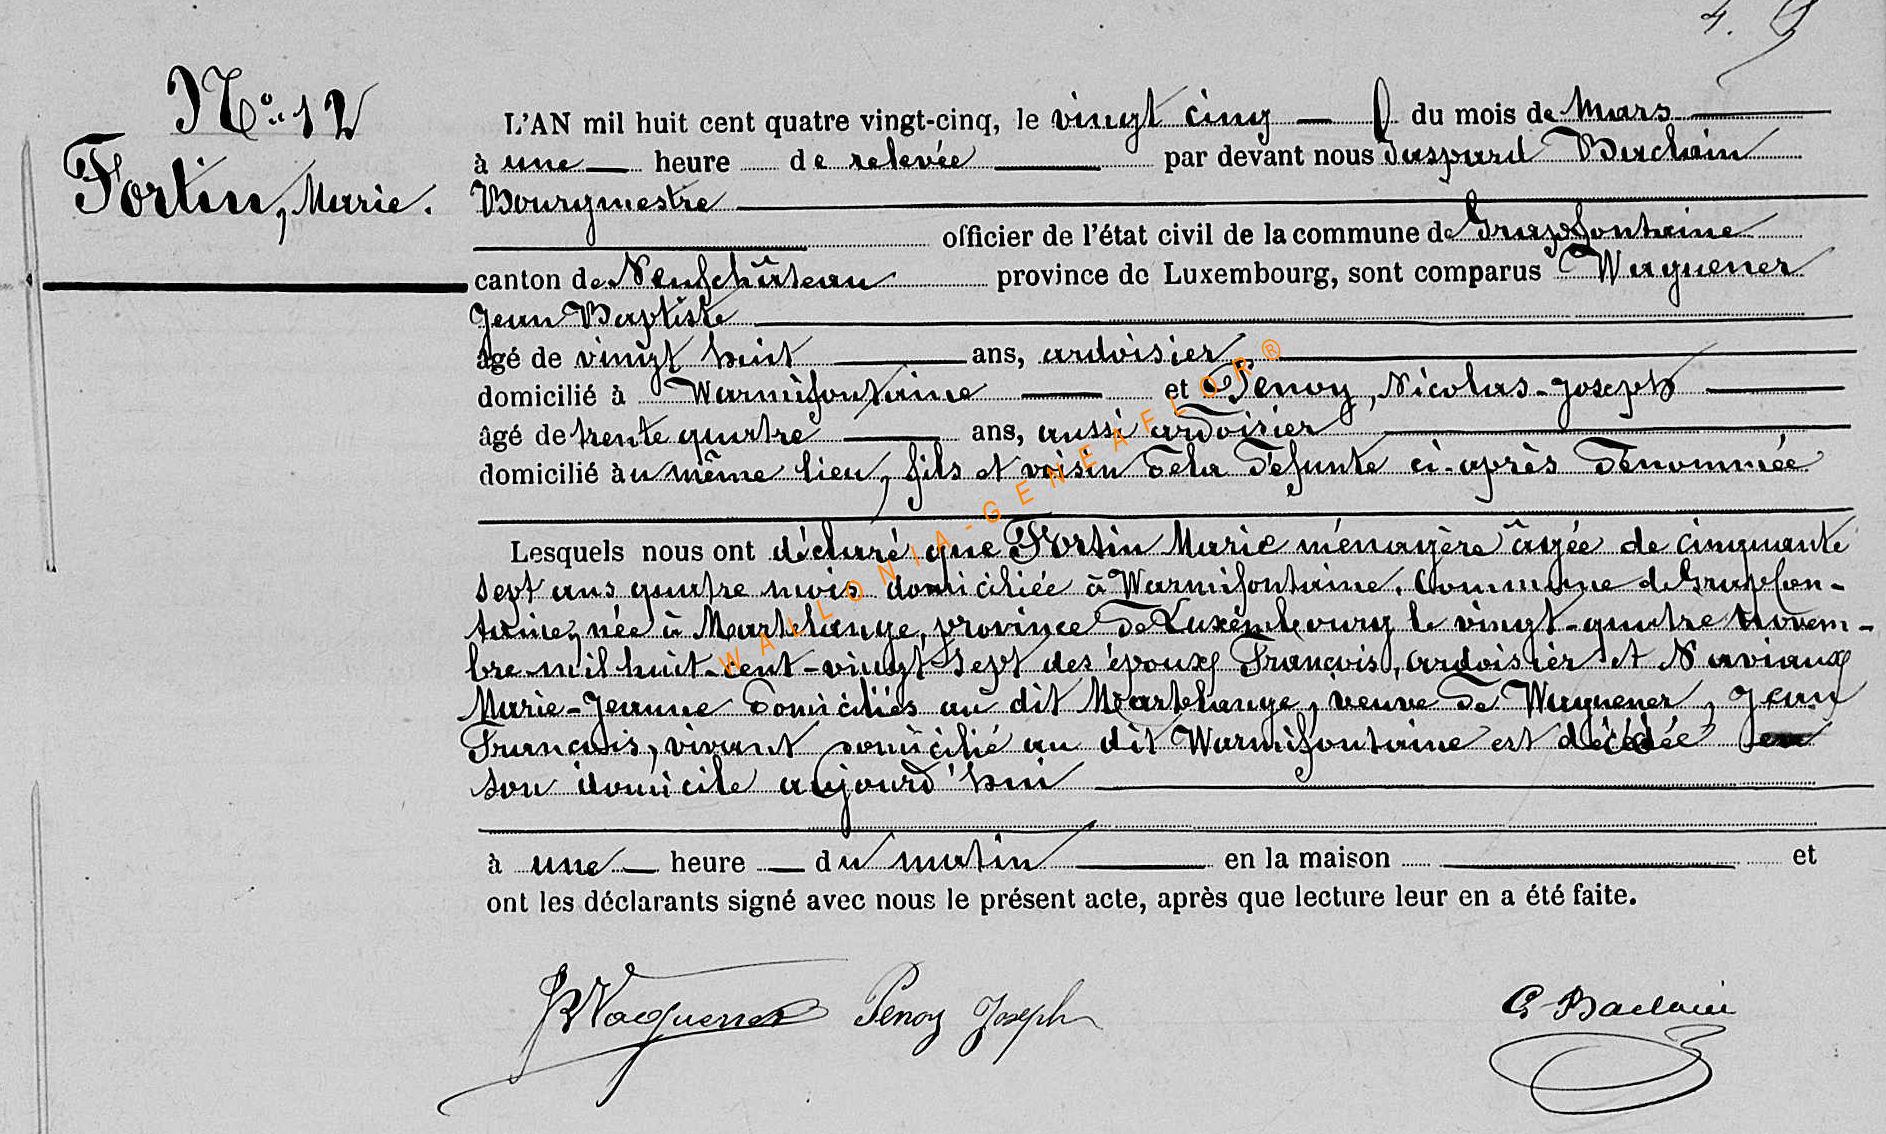 4. 9
N° 12
Fortin, Marie.
L'AN mil huit cent quatre vingt-cinq, le vingt cinq du mois de Mars
à une heure de relevée par devant nous Gaspard Baclain
Bourgmestre
officier de l'état civil de la commune de Grapfontaine
canton de Neufchâteau province de Luxembourg, sont comparus Waguener
Jean Baptiste
âgé de vingt huit ans, ardoisier
domicilié à Warmifontaine et Penoy, Nicolas-Joseph
âgé de trente quatre ans, aussi ardoisier
domicilié au même lieu, fils et voisin de la défunte ci-après dénommée
Lesquels nous ont déclaré que Fortin Marie ménagère âgée de cinquante
sept ans quatre mois domiciliée à Warmifontaine, Commune de Grapfon-
taine, née à Martelange, province de Luxembourg le vingt-quatre novem-
bre mil huit-cent-vingt sept des époux François, ardoisier et Naviaux
Marie-Jeanne domiciliés au dit Martelange, veuve de Waguener, Jean
François, vivant domicilié au dit Warmifontaine est décédée en
son domicile aujourd'hui
à une heure du matin en la maison et
ont les déclarants signé avec nous le présent acte, après que lecture leur en a été faite.
JBWaguener Penoy Joseph G. Baclain
WALLONIA-GENEAFLOR®